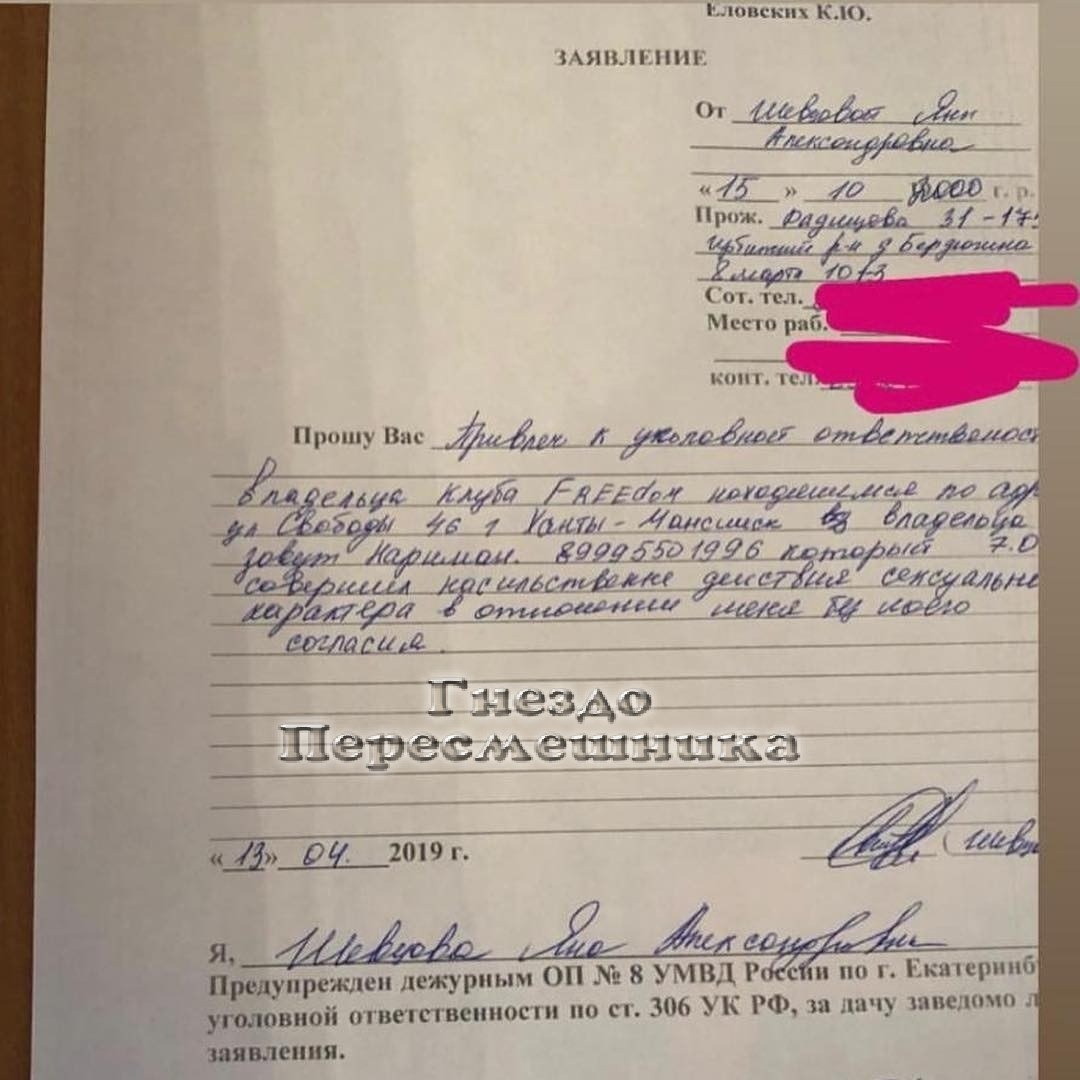 Еловских К.Ю.
ЗАЯВЛЕНИЕ
От Шевцовой Яны
Александровна
«15» 10 2000 г. р.
Прож. Радищева 31-17
Ирбитский р-н д Бердюгина
8 марта 10
Сот. тел.
Место раб.
конт. тел.
Прошу Вас Привлеч к уголовной ответственост
владельца клуба FREEdom находящимся по адр
ул Свободы 46 г Ханты-Мансийск владельца
зовут Нариман. 89995501996 который 7.0
совершил насильственне действия сексуально
характера в отношении меня без моего
согласия.
Гнездо
Пересмешника
«13» 04. 2019 г.
(Шевц
Я, Шевцова Яна Александровна
Предупрежден дежурным ОП № 8 УМВД России по г. Екатеринб
уголовной ответственности по ст. 306 УК РФ, за дачу заведомо л
заявления.